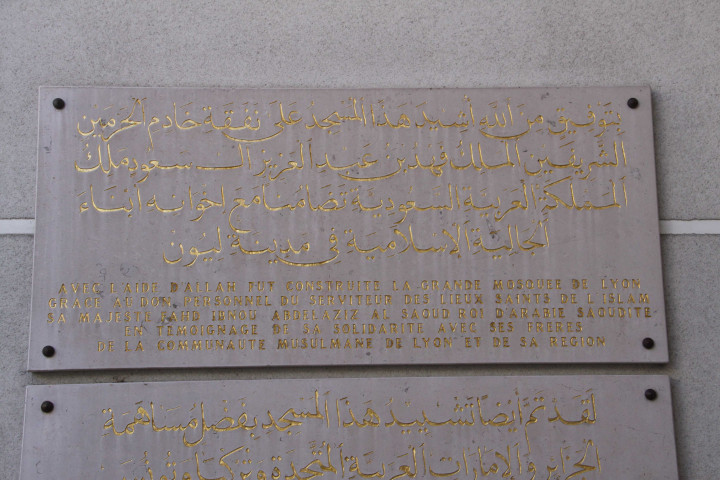 بتوفيق من الله أشيد هذا المسجد على نفقة خادم الحرمين
الشريفين الملك فهد بن عبد العزيز آل سعود ملك
المملكة العربية السعودية تضامنا مع إخوانه أبناء
الجالية الإسلامية في مدينة ليون
AVEC L'AIDE D'ALLAH FUT CONSTRUITE LA GRANDE MOSQUEE DE LYON
GRACE AU DON PERSONNEL DU SERVITEUR DES LIEUX SAINTS DE L'ISLAM
SA MAJESTE FAHD IBNOU ABDELAZIZ AL SAOUD ROI D'ARABIE SAOUDITE
EN TEMOIGNAGE DE SA SOLIDARITE AVEC SES FRERES
DE LA COMMUNAUTE MUSULMANE DE LYON ET DE SA REGION
لقد تم أيضا تشييد هذا المسجد بفضل مساهمة
الجزائر والإمارات العربية المتحدة وتركيا وتونس